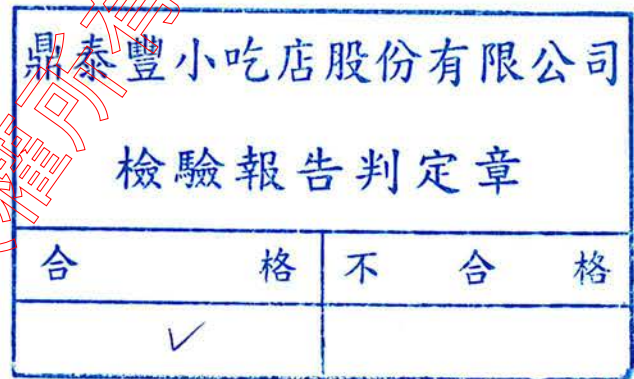 鼎泰豐小吃店股份有限公司
檢驗報告判定章
合格 不合格
✓
權所有